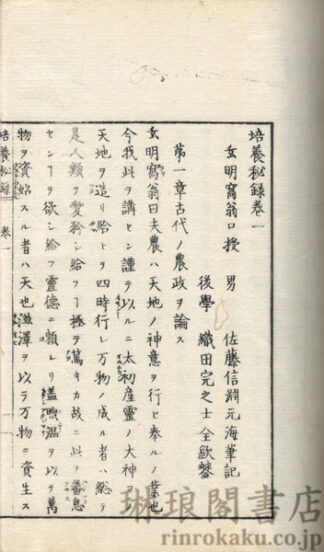 培養秘録巻一
玄明窩翁口授 男 佐藤信淵元海筆記
後學 織田完之士全歐鑒
第一章古代ノ農政ヲ論ス
玄明窩翁曰夫農ハ天地ノ神意ヲ行ヒ奉ルノ業也
今我此ヲ講セン謹テ以ルニ太初産靈ノ大神
天地ヲ造リ給ヒヲ四時行レ万物ノ成ル者ハ總テ
是人類ヲ愛
セントヲ欲シ給フ靈德ニ頼レリ
ヲ以ヲ萬
物ヲ資始スル者ハ天也
澤ヲ以テ万物ヲ資生ス
培養秘録 巻一 一
琳琅閣書店
rinrokaku.co.jp